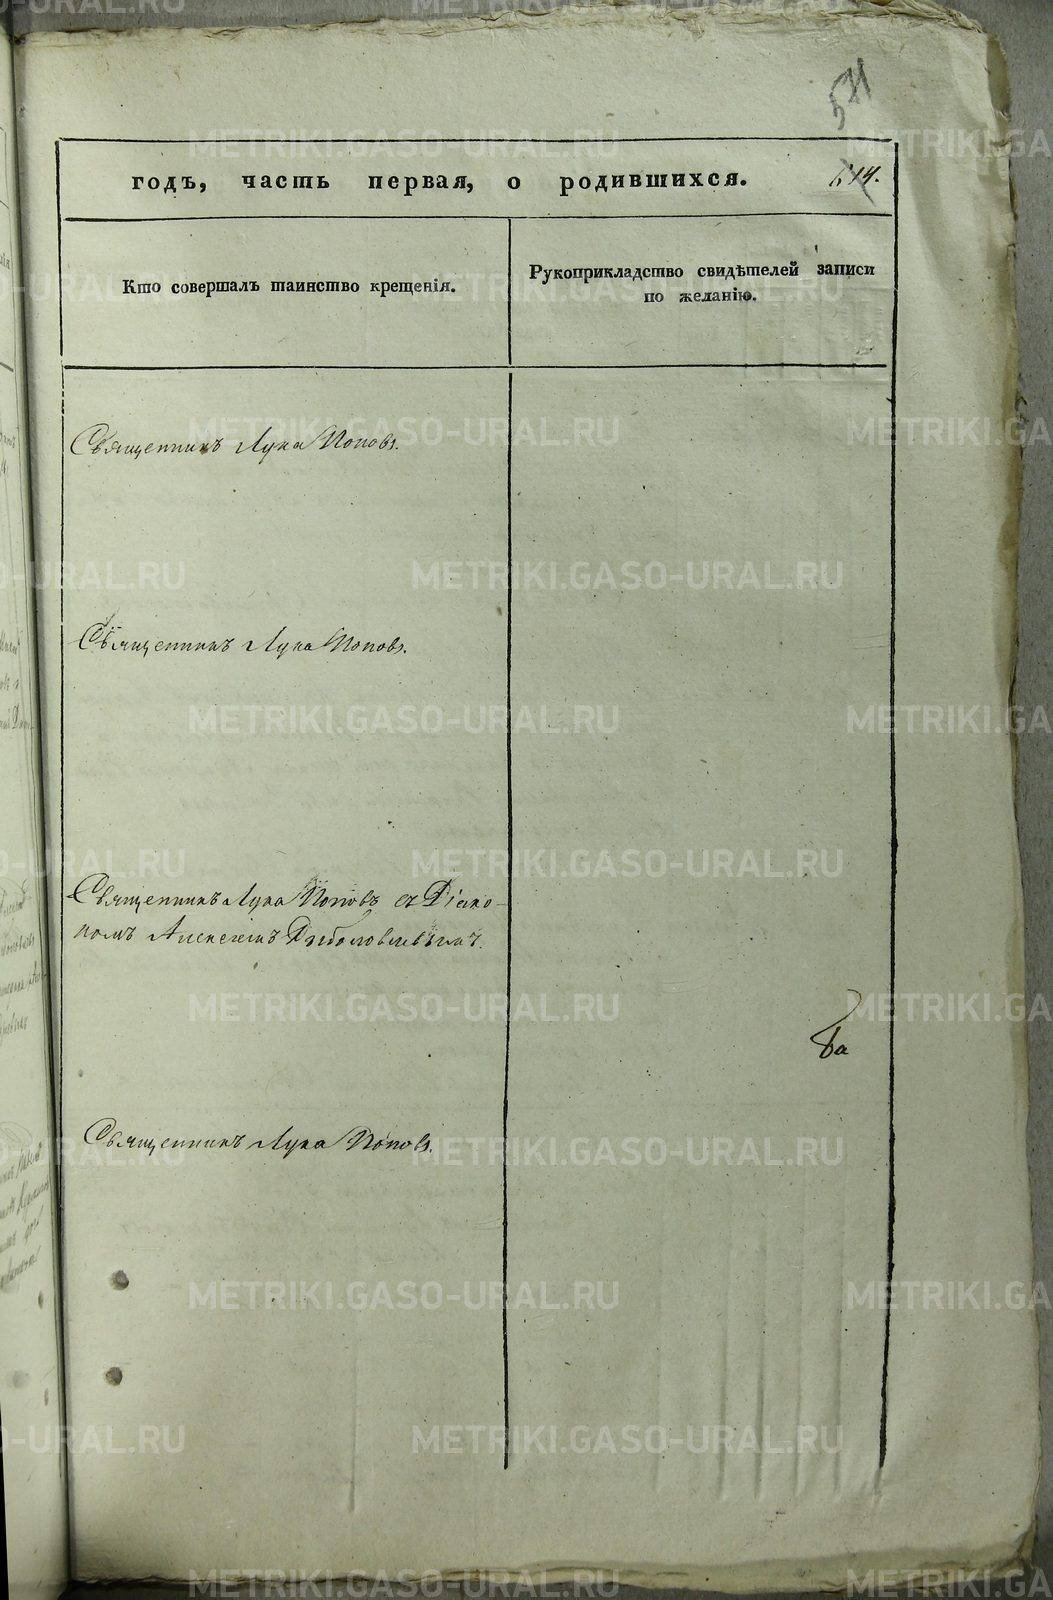 571
годъ, часть первая, о родившихся.
Кто совершалъ таинство крещенія.
Рукоприкладство свидѣтелей записи
по желанію.
Священникъ Лука Поповъ.
Священникъ Лука Поповъ.
Священникъ Лука Поповъ съ Діако-
номъ Алексіемъ
Священникъ Лука Поповъ.
METRIKI.GASO-URAL.RU